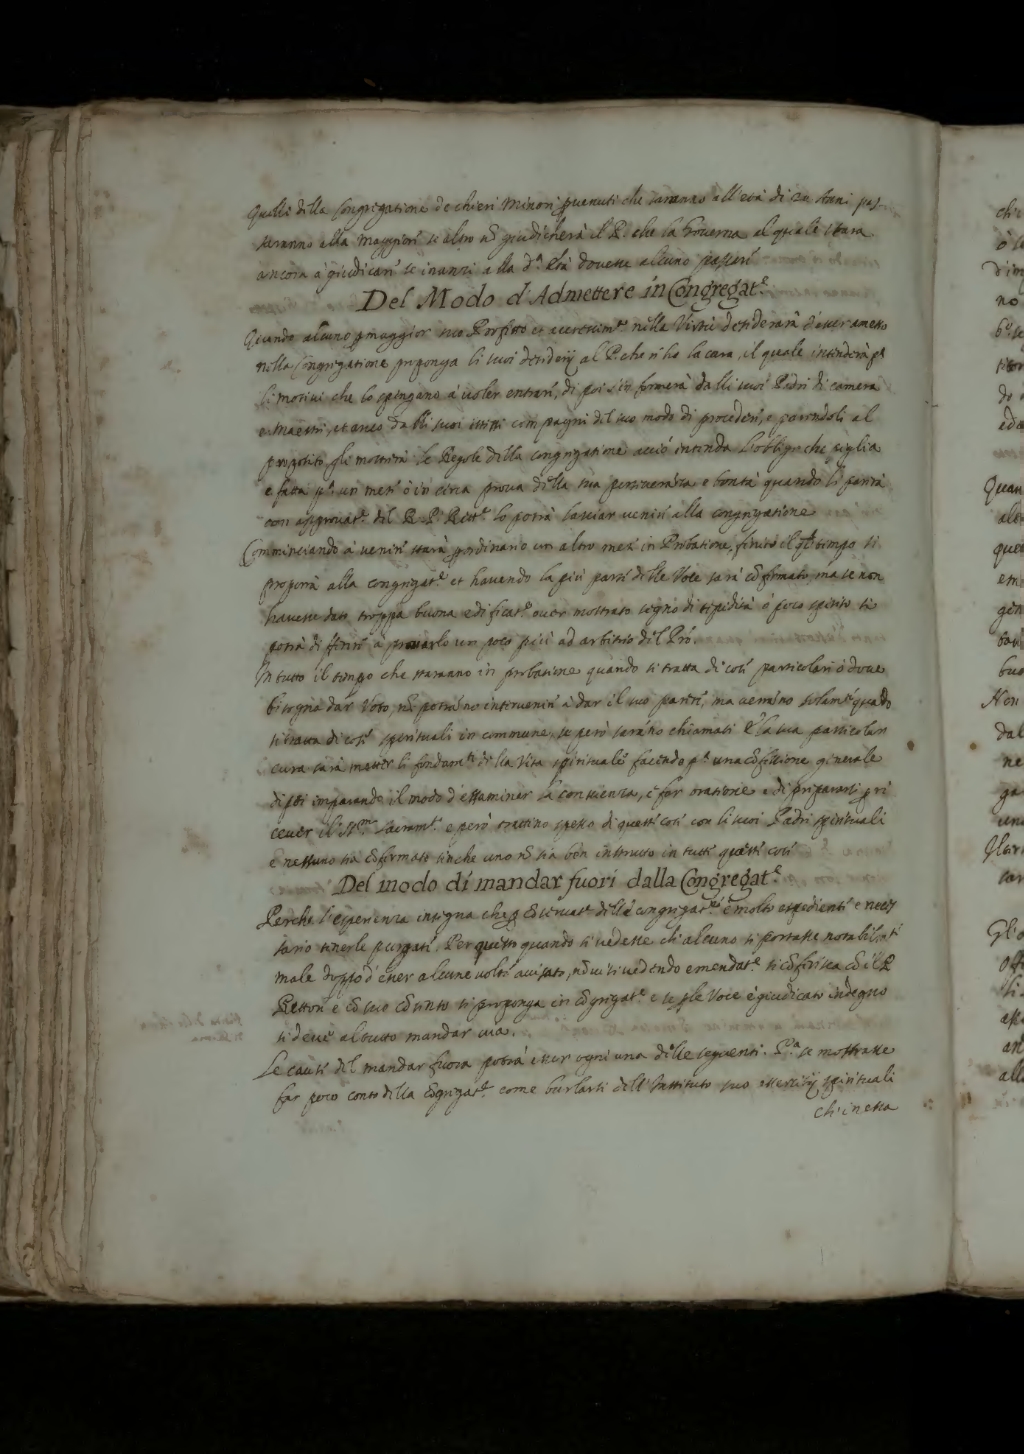 Quelli della Congregatione de chieri Minori pvenuti che saranno all'età di 20 Anni pas-
saranno alla Maggiore se altro nõ giudicherà il P. che la Governa al quale stara
ancora à giudicare se inanzi alla d.ª Età dovesse alcuno passare
Del Modo d'Admettere in Congregat.e
Quando alcuno p maggior suo Profitto et accrescim.to nella Virtù desiderarà d'esser amesso
nella Congregatione proponga li suoi desiderij al P. che n'ha la cura, il quale intenderà p.a
li motivi che lo spingano à voler entrare, di poi s'informerà dalli suoi Padri di camera
e Maestri, et anco dalli suoi istessi compagni del suo modo di procedere, e parendoli al
proposito, gli mostrerà le Regole della congregatione acciò intenda l'obbligo che piglia
e fatta p un mese ò in circa prova della sua perseveranza e bontà quando li parrà
con approvat.e del R. P. Rett.e lo potrà lasciar venire alla congregatione
Comminciando à venire starà p ordinario un altro mese in Probatione, finito il qle tempo si
proporrà alla congregat.e et havendo la più parte delle Voce sarà cõfirmato, ma se non
havesse dato troppa buona edificat.e over mostrato segno di tepidità ò poco spirito si
potrà differire à provarlo un poco più ad arbitrio del Prõ.
In tutto il tempo che staranno in probatione quando si tratta di cose particolari ò dove
bisogna dar Voto, nõ potrãno intervenire à dar il suo parere, ma verrãno solam.te quãdo
si tratta di cose spirituali in commune, se però sarãno chiamati E la sua particolar
cura sarà metter li fondam.ti della Vita spirituale facendo p.a una cõfessione generale
di poi imparando il modo d'essaminar la conscienza, e far oratione e di prepararsi p ri
cever il SS.mo Sacram.to e però trattino spesso di queste cose con li suoi Padri spirituali
e nessuno sia cõfirmato sinche uno nõ sia ben instrutto in tutte queste cose
Del modo di mandar fuori dalla Congregat.e
Perche l'esperienza insegna che p cõservat.e delle congregat.ni è molto espediente e neces
sario tenerle purgate, Per questo quando si vedesse ch'alcuno si portasse notabilm.te
male doppo d'esser alcune volte avisato, nõ vi si vedendo emendat.e si cõferisca cõ il P.
Rettore e cõ suo cõsenso si proponga in cõgregat.e e se p le Voce è giudicato indegno
si deve al tutto mandar via.
Le cause del mandar fuora potrà esser ogni una delle seguenti. P.a se mostrasse
far poco conto della cõgregat.e come burlarsi dell'Instituto suo essercitij spirituali
ch'in essa